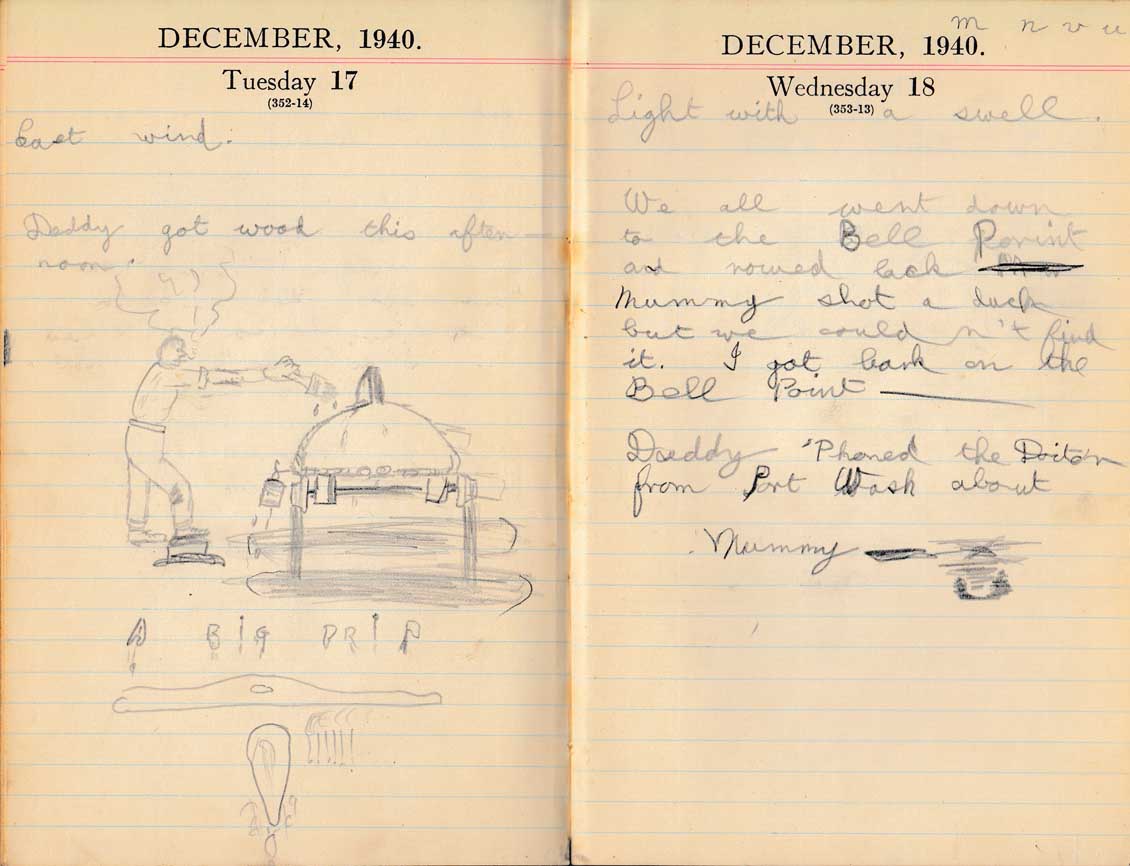 DECEMBER, 1940.
Tuesday 17
(352-14)
East wind.
Daddy got wood this after-
noon.
A BIG DRIP
m n v u
DECEMBER, 1940.
Wednesday 18
(353-13)
Light with a swell.
We all went down
to the Bell Porint
and rowed back
Mummy shot a duck
but we could n't find
it. I got bark on the
Bell Point
Daddy 'Phoned the
from Port Wash about
Mummy